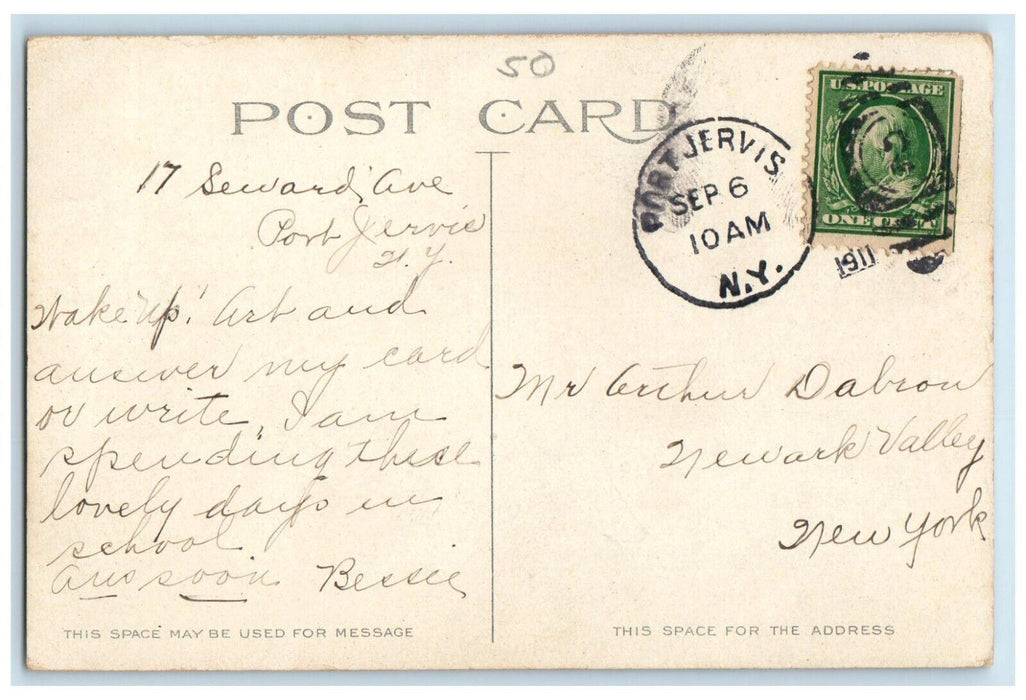 50
POST CARD
17 Seward Ave
Port Jervis
N.Y.
Wake Up! Art and
answer my card
or write, I am
spending these
lovely days in
school
Ans soon Bessie
THIS SPACE MAY BE USED FOR MESSAGE
PORT JERVIS
SEP 6
10 AM
N.Y.
1911
U.S. POSTAGE
ONE CENT
Mr Arthur Dabron
Newark Valley
New York
THIS SPACE FOR THE ADDRESS